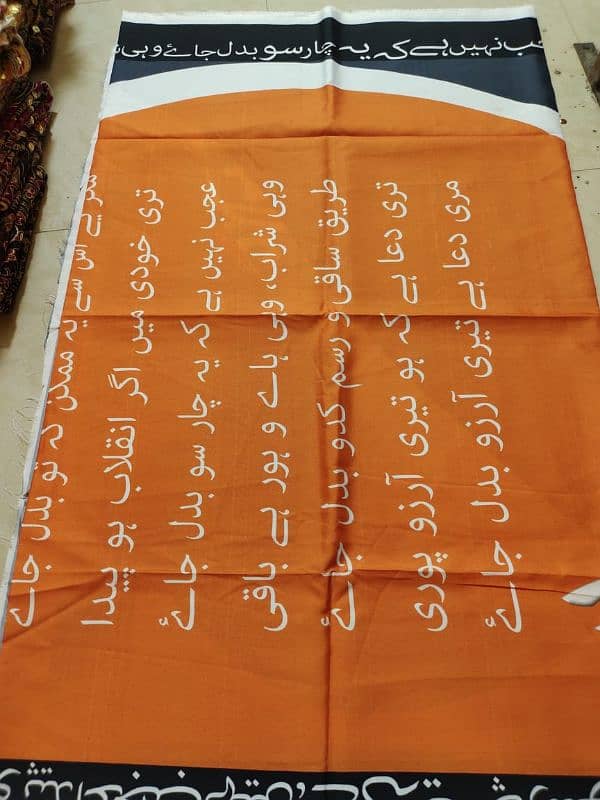 عجب نہیں ہے کہ یہ چار سو بدل جائے وہی
مگر ہے اس سے یہ ممکن کہ تو بدل جائے
تری خودی میں اگر انقلاب ہو پیدا
عجب نہیں ہے کہ یہ چار سو بدل جائے
وہی شراب، وہی ہاے و ہور ہے باقی
طریق ساقی و رسم کدو بدل جائے
تری دعا ہے کہ ہو تیری آرزو پوری
مری دعا ہے تیری آرزو بدل جائے